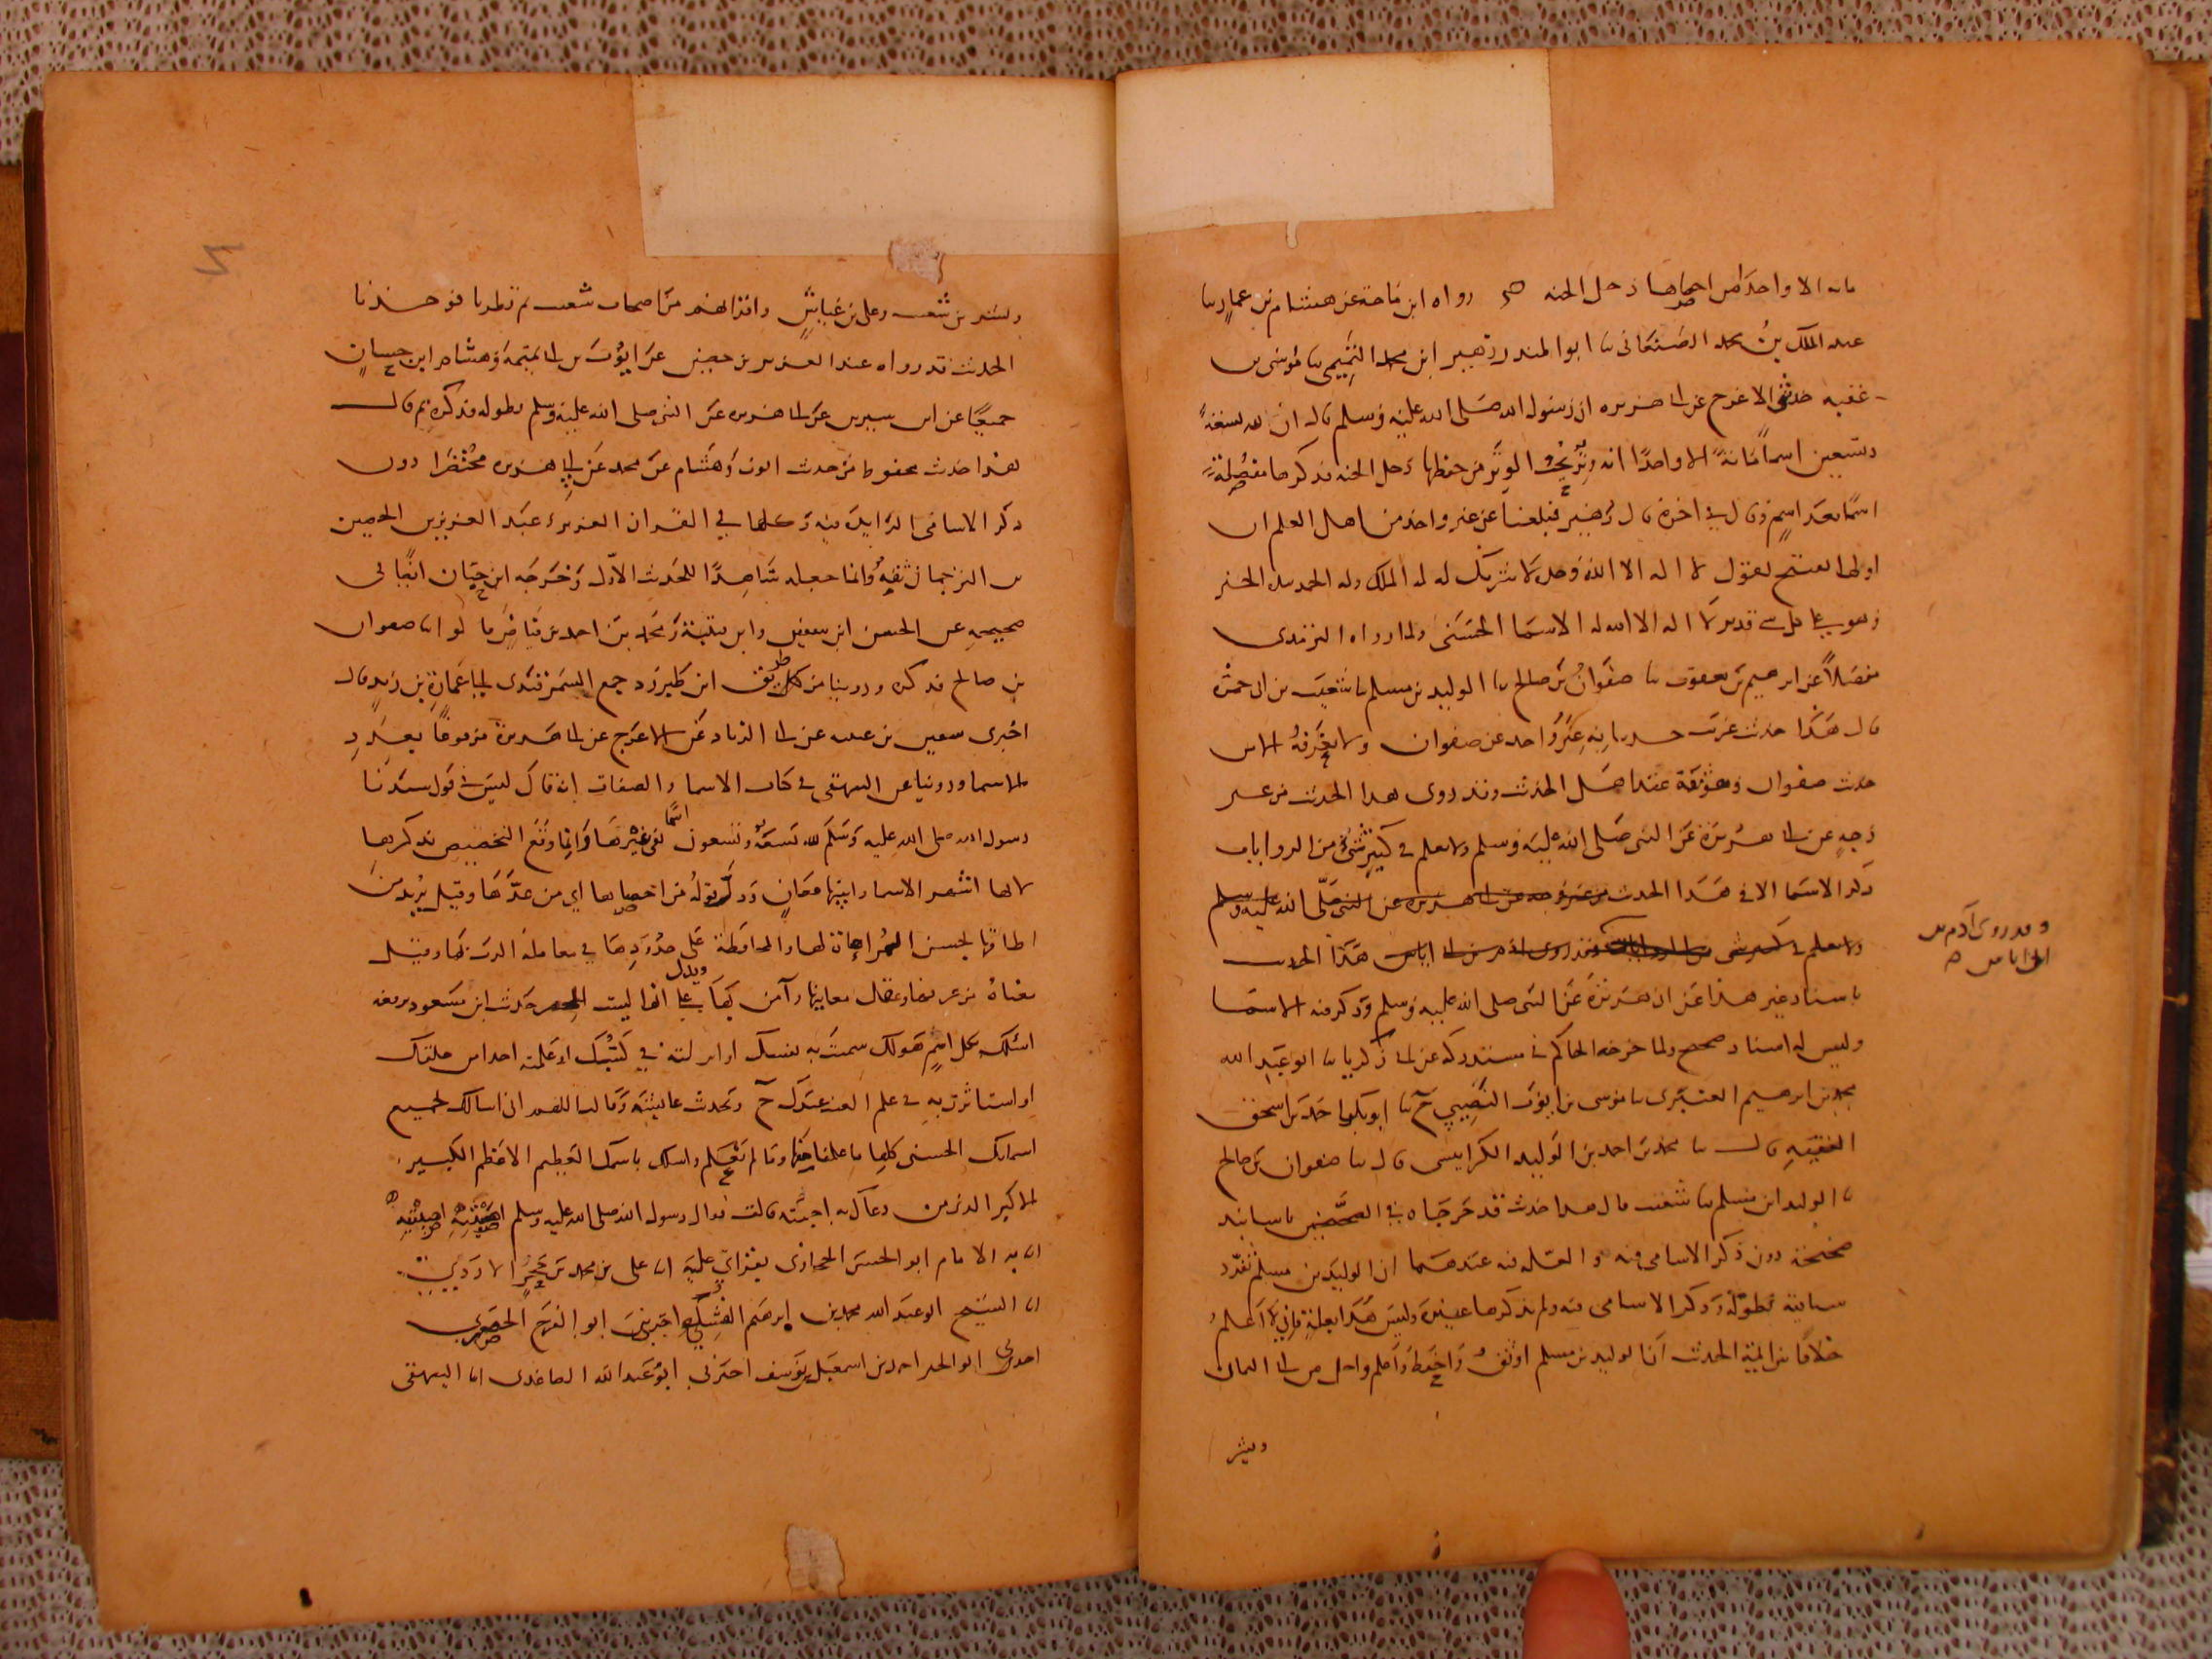 مايه الا واحدا من احصاها دخل الجنه رواه ابن ماجة عن هشام بن عمار ثنا
عبد الملك بن محمد الصنعاني ثنا ابو المنذر زهير ابن محمد التميمي ثنا موسى بن
عقبه حدثني الاعرج عن ابي هريره ان رسول الله صلى الله عليه وسلم قال ان لله تسعةً
وتسعين اسماً مائةً الا واحدًا انه وتر يحب الوتر من حفظها دخل الجنه فذكرها مفصلة
اسمًا بعد اسمٍ وقال في اخره قال زهير فبلغنا عن غير واحد من اهل العلم ان
اولها يفتتح بقول لا اله الا الله وحده لا شريك له له الملك وله الحمد بيده الخير
وهو على كل شي قدير لا اله الا الله له الاسما الحسنى ولما رواه الترمذي
مفصلاً عن ابرهيم بن يعقوب ثنا صفوان بن صالح ثنا الوليد بن مسلم ثنا شعيب بن ابي حمزة
قال هذا حديث غريب حدثنا به غير واحد عن صفوان ولا نعرفه الا من
حديث صفوان وهو ثقة عند اهل الحديث وقد روى هذا الحديث من غير
وجهٍ عن ابي هريرة عن النبي صلى الله عليه وسلم ولا نعلم في كبير شيء من الروايات
ذكر الاسما الا في هذا الحديث من غير وجه عن ابي هريره عن النبي صلى الله عليه وسلم
ولا نعلم في كبير شي من الروايات وقد روى ادم بن ابي اياس هذا الحديث
وقد روى آدم بن
ابي اياس
باسناد غير هذا عن ابي هريرة عن النبي صلى الله عليه وسلم وذكر فيه الاسما
وليس له اسناد صحيح ولما خرجه الحاكم في مستدركه عن ابي زكريا ثنا ابو عبد الله
محمد بن ابرهيم العبدي ثنا موسى بن ايوب النصيبي ح ثنا ابو بكر احمد بن اسحق
الفقيه قال ثنا محمد بن احمد بن الوليد الكرابيسي قال ثنا صفوان بن صالح
ثنا الوليد ابن مسلم ثنا شعيب قال هذا حديث قد خرجاه في الصحيحين باسانيد
صحيحة دون ذكر الاسامي فيه والعله فيه عندهما ان الوليد بن مسلم تفرد
بسياقته بطوله وذكر الاسامي فيه ولم يذكرها غيره وليس هذا بعلة فاني لا اعلم
خلافًا بين ائمة الحديث ان الوليد بن مسلم اوثق واحفظ واعلم واجل من ابي اليمان
وبشر
وبشر بن شعيب وعلي بن عياش واقرانهم من اصحاب شعيب ثم نظرنا فوجدنا
الحديث قد رواه عبد العزيز بن حصين عن ايوب بن ابي تميمة وهشام ابن حسان
جميعًا عن ابن سيرين عن ابي هريره عن النبي صلى الله عليه وسلم بطوله فذكره ثم قال
هذا حديث محفوظ من حديث ايوب وهشام عن محمد عن ابي هريره مختصرًا دون
ذكر الاسامي الزايدة فيه وكلها في القران العزيز وعبد العزيز بن الحصين
بن الترجمان ثقة وانما جعله شاهدًا للحديث الاول وخرجه ابن حبان ايضًا في
صحيحه عن الحسن ابن سفين وابن قتيبة ومحمد بن احمد بن فياض ما قالوا انا صفوان
بن صالح فذكره وروينا من طريق ابن طبرزد جمع السمرقندي ابا عمارة بن زيد قال
اخبرني سعيد بن عن ابي الزناد عن الاعرج عن ابي هريرة مرفوعًا بعدد
الاسما وروينا عن البيهقي في كتاب الاسما والصفات انه قال ليس في قول سيدنا
رسول الله صلى الله عليه وسلم لله تسعة وتسعون اسمًا نفي غيرها وانما وقع التخصيص بذكرها
لانها اشهر الاسما وابينها معان ودل قوله من احصاها اي من عدها وقيل يريد من
اطاقها بحسن المراعاة لها والمحافظة على حدودها في معاملة الرب بها وقيل
معناه من عرفها وعقل معانيها وآمن بها ويدل على انها ليست الحصر حديث ابن مسعود يرفعه
اسئلك بكل اسمٍ هو لك سميت به نفسك او انزلته في كتبك او علمته احدا من خلقك
او استاثرت به في علم الغيب عندك ح وحديث عائشة وقالت اللهم اني اسالك بجميع
اسمائك الحسنى كلها ما علمنا منها وما لم نعلم واسالك باسمك العظيم الاعظم الكبير
الاكبر الذي من دعاك به اجبته قالت فقال رسول الله صلى الله عليه وسلم اصبتيه اصبتيه
انا به الامام ابو الحسن بقراتي عليه انا علي بن محمد بن
انا الشيخ ابو عبد الله محمد بن ابرهيم اخبرني ابو الفرج الحصري
اخبرني ابو الخير احمد بن اسمعيل بن يوسف اخبرني ابو عبد الله الصاعدي انا البيهقي